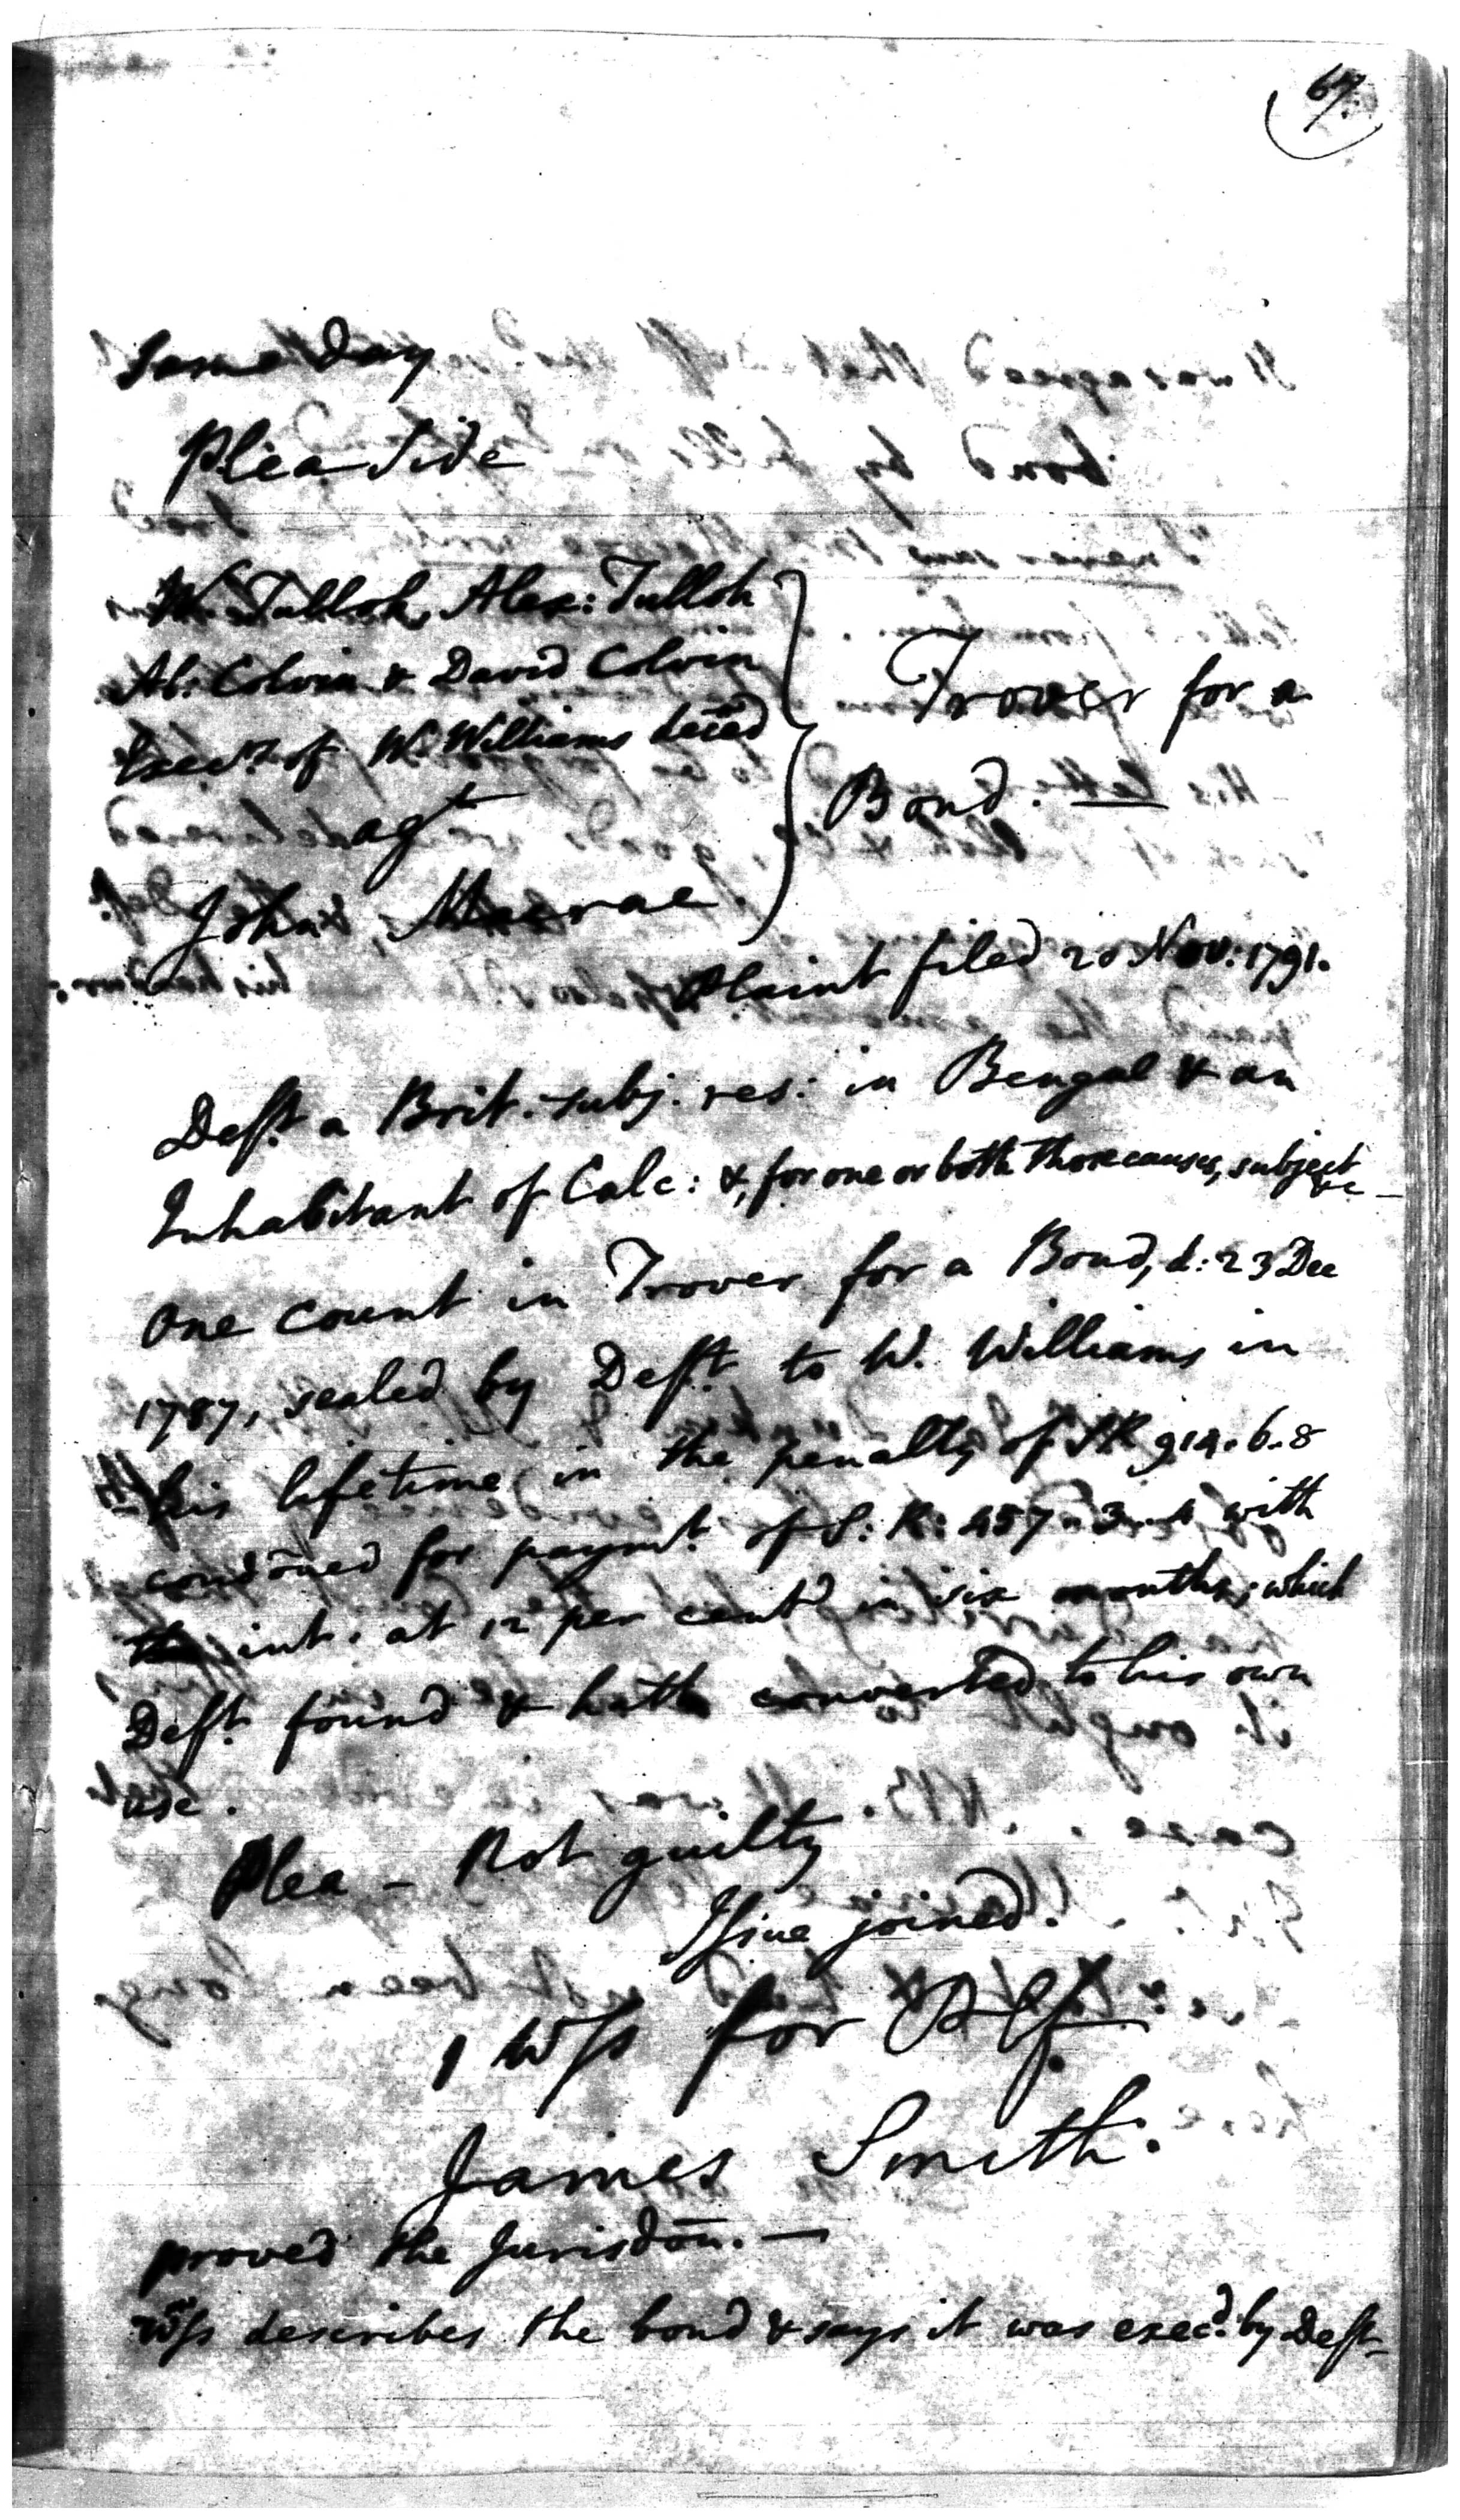 67.
Same Day
Plea Side
W. Tulloh, Alex: Tulloh
Al: Colvin & David Colvin
Execrs. of W. Williams decẽd
agt
John Macrae
Trover for a
Bond. —
Plaint filed 20 Nov: 1791.
Deft. a Brit. subj. res: in Bengal & an
Inhabitant of Calc: &, for one or both those causes, subject &c —
One count in Trover for a Bond, d: 23 Dec
1787, sealed by Deft. to W. Williams in
his lifetime in the penalty of SR 914. 6. 8
condõned for paymt. of S: R: 457. 3. 4 with
int. at 12 per cent in six months; which
Deft. found & hath converted to his own
use.
Plea — Not guilty
Issue joined.
1 Wss for Plf.
James Smith.
proved the Jurisdõn. —
Wss describes the bond & says it was execd. by Deft